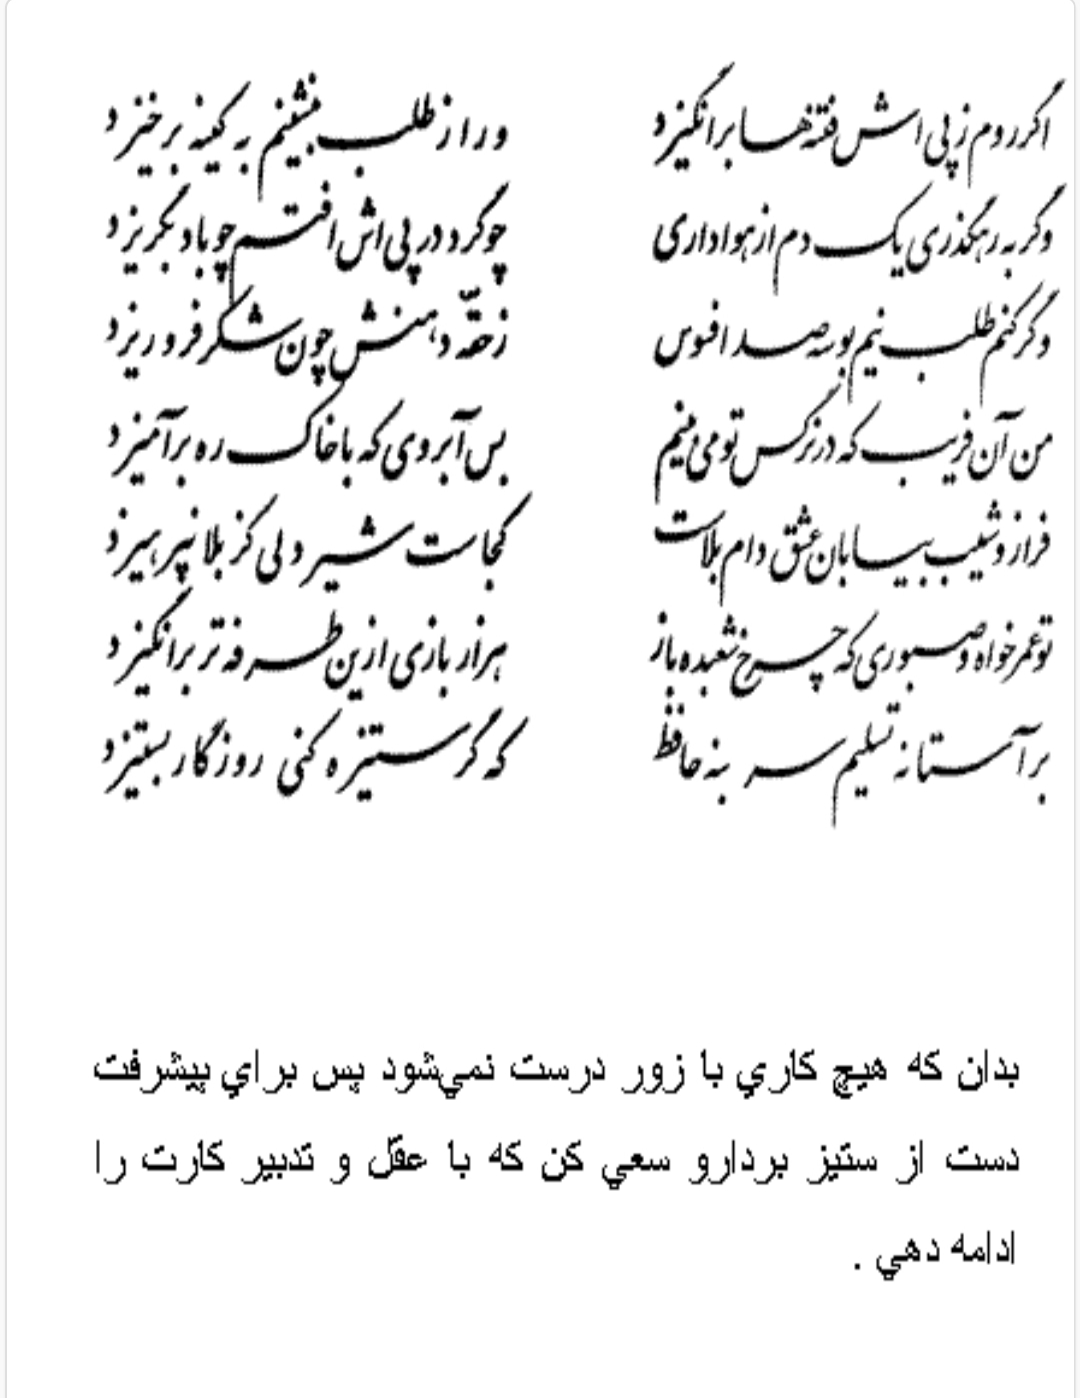 اگر روم ز پی اش فتنه‌ها برانگیزد ور از طلب بنشینم به کینه برخیزد
وگر به رهگذری یک دم از هواداری چو گرد در پی اش افتم چو باد بگریزد
وگر کنم طلب نیم بوسه صد افسوس ز حقّه دهنش چون شکر فرو ریزد
من آن فریب که در نرگس تو می بینم بس آبروی که با خاک ره برآمیزد
فراز و شیب بیابان عشق دام بلاست کجاست شیر دلی کز بلا نپرهیزد
تو عمر خواه و صبوری که چرخ شعبده باز هزار بازی ازین طرفه تر برانگیزد
بر آستانه تسلیم سر بنه حافظ که گر ستیزه کنی روزگار بستیزد
بدان که هيچ کاري با زور درست نمي‌شود پس براي پيشرفت
دست از ستيز بردارو سعي کن که با عقل و تدبير کارت را
ادامه دهي .